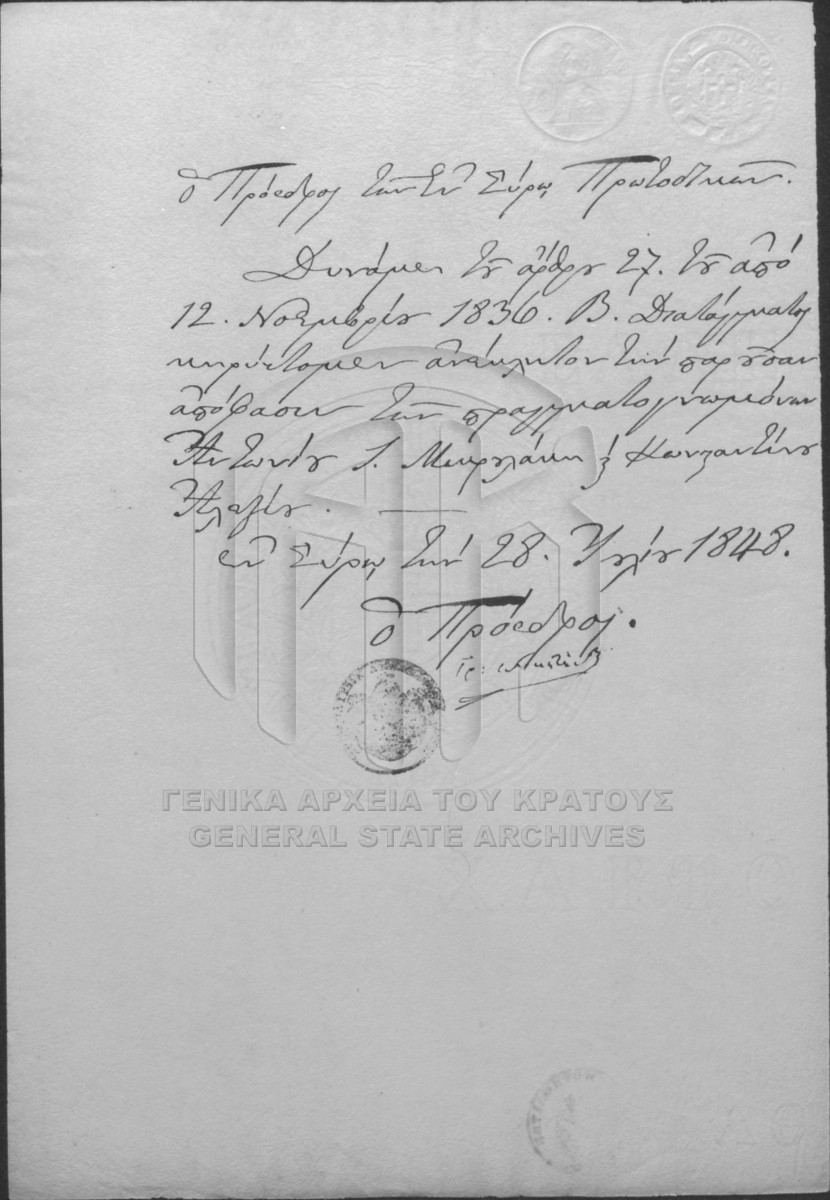 Ὁ Πρόεδρος τῶν ἐν Σύρῳ Πρωτοδικῶν.
Δυνάμει τοῦ ἄρθρου 27. τοῦ ἀπό
12. Νοεμβρίου 1836. Β. Διατάγματος
κηρύττομεν ἀνέκλητον τὴν παροῦσαν
ἀπόφασιν τῶν πραγματογνωμόνων
Ἀντωνίου Ι. & Κωνσταντίνου
ἐν Σύρῳ τὴν 28. Ἰουλίου 1848.
Ὁ Πρόεδρος.
ΓΕΝΙΚΑ ΑΡΧΕΙΑ ΤΟΥ ΚΡΑΤΟΥΣ
GENERAL STATE ARCHIVES